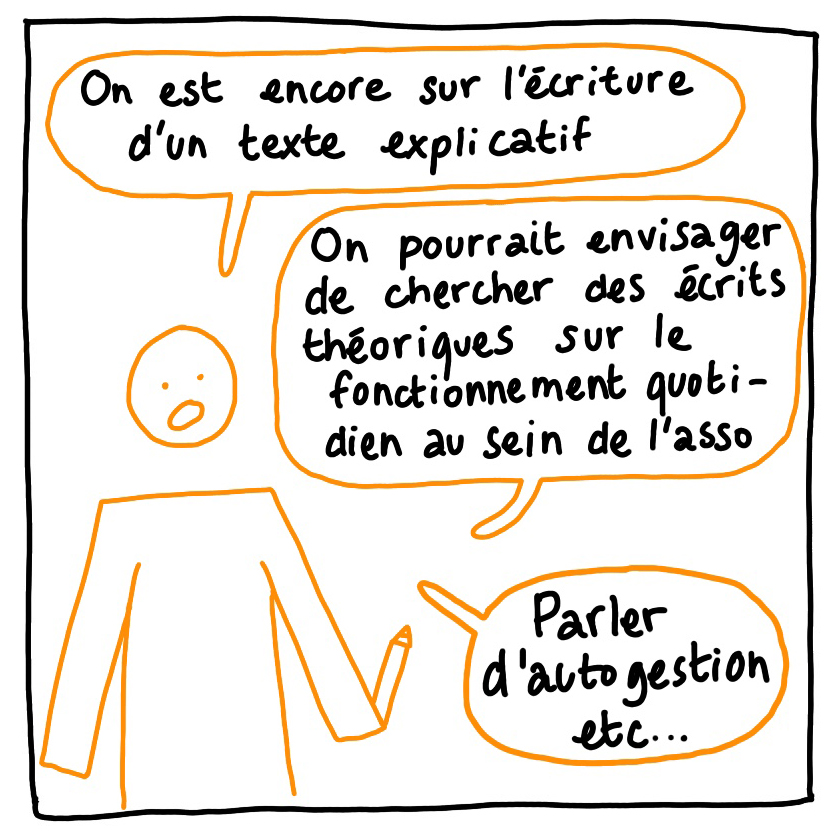 On est encore sur l'écriture
d'un texte explicatif
On pourrait envisager
de chercher des écrits
théoriques sur le
fonctionnement quoti-
dien au sein de l'asso
Parler
d'autogestion
etc...